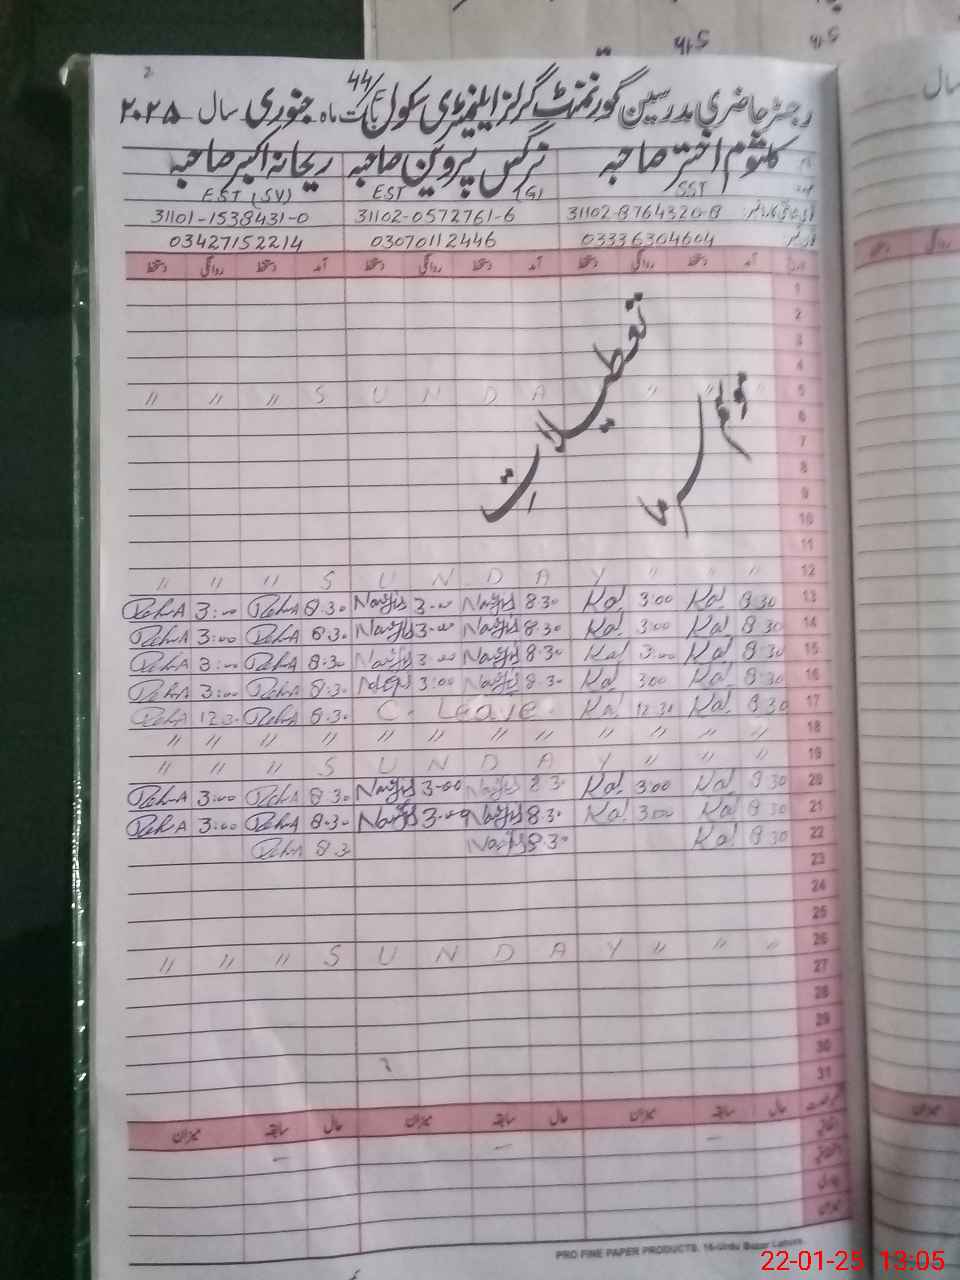 2
44
رجسٹر حاضری مدرسین گورنمنٹ گرلز ایلیمنٹری سکول ماہ جنوری سال ۲۰۲۵
کلثوم اختر صاحبہ نرگس پروین صاحبہ ریحانہ اکبر صاحبہ
SST EST (G) EST (SV)
31102-8764320-8 31102-0572761-6 31101-1538431-0
03336304604 03070112446 03427152214
آمد دستخط روانگی دستخط آمد دستخط روانگی دستخط آمد دستخط روانگی دستخط
1
2
3
4
5 " " " S U N D A " "
تعطیلات
موسم سرما
6
7
8
9
10
11
12 " " " S U N D A Y " " "
13 3:00 8:30 Nargis 3:00 Nargis 8:30 Kal 3:00 Kal 8:30
14 3:00 8:30 Nargis 3:00 Nargis 8:30 Kal 3:00 Kal 8:30
15 3:00 8:30 Nargis 3:00 Nargis 8:30 Kal 3:00 Kal 8:30
16 3:00 8:30 Nargis 3:00 Nargis 8:30 Kal 3:00 Kal 8:30
17 12:30 8:30 C. Leave. Kal 12:30 Kal 8:30
18 " " " " " " " " " " " "
19 " " " S U N D A Y " " "
20 3:00 8:30 Nargis 3:00 Nargis 8:30 Kal 3:00 Kal 8:30
21 3:00 8:30 Nargis 3:00 Nargis 8:30 Kal 3:00 Kal 8:30
22 8:30 Nargis 8:30 Kal 8:30
23
24
25
26 " " " S U N D A Y " " "
27
28
29
30
31
حال سابقہ میزان حال سابقہ میزان حال سابقہ میزان
میزان
PRO FINE PAPER PRODUCTS. 16-Urdu Bazar Lahore.
22-01-25 13:05